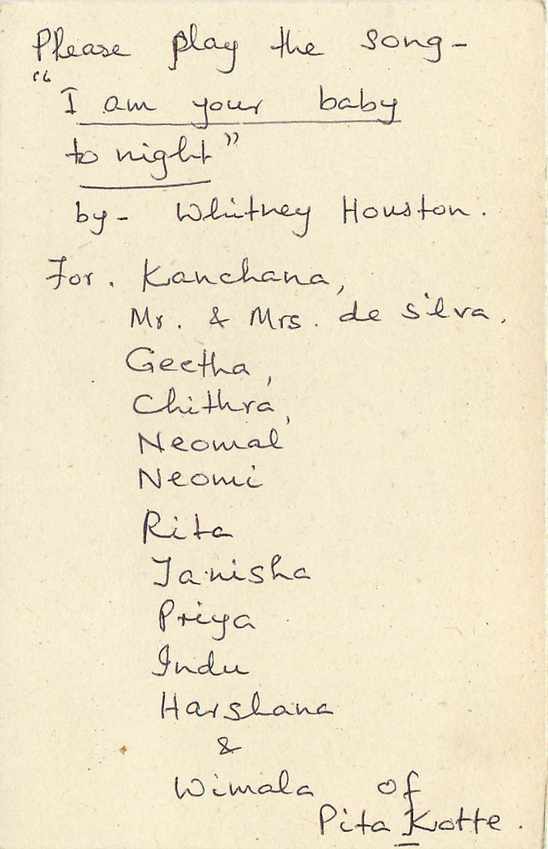 Please play the song -
"I am your baby
to night"
by - Whitney Houston.
For. Kanchana,
Mr. & Mrs. de silva,
Geetha,
Chithra,
Neomal
Neomi
Rita
Tanisha
Priya
Indu
Harshana
&
Wimala of
Pita Kotte.